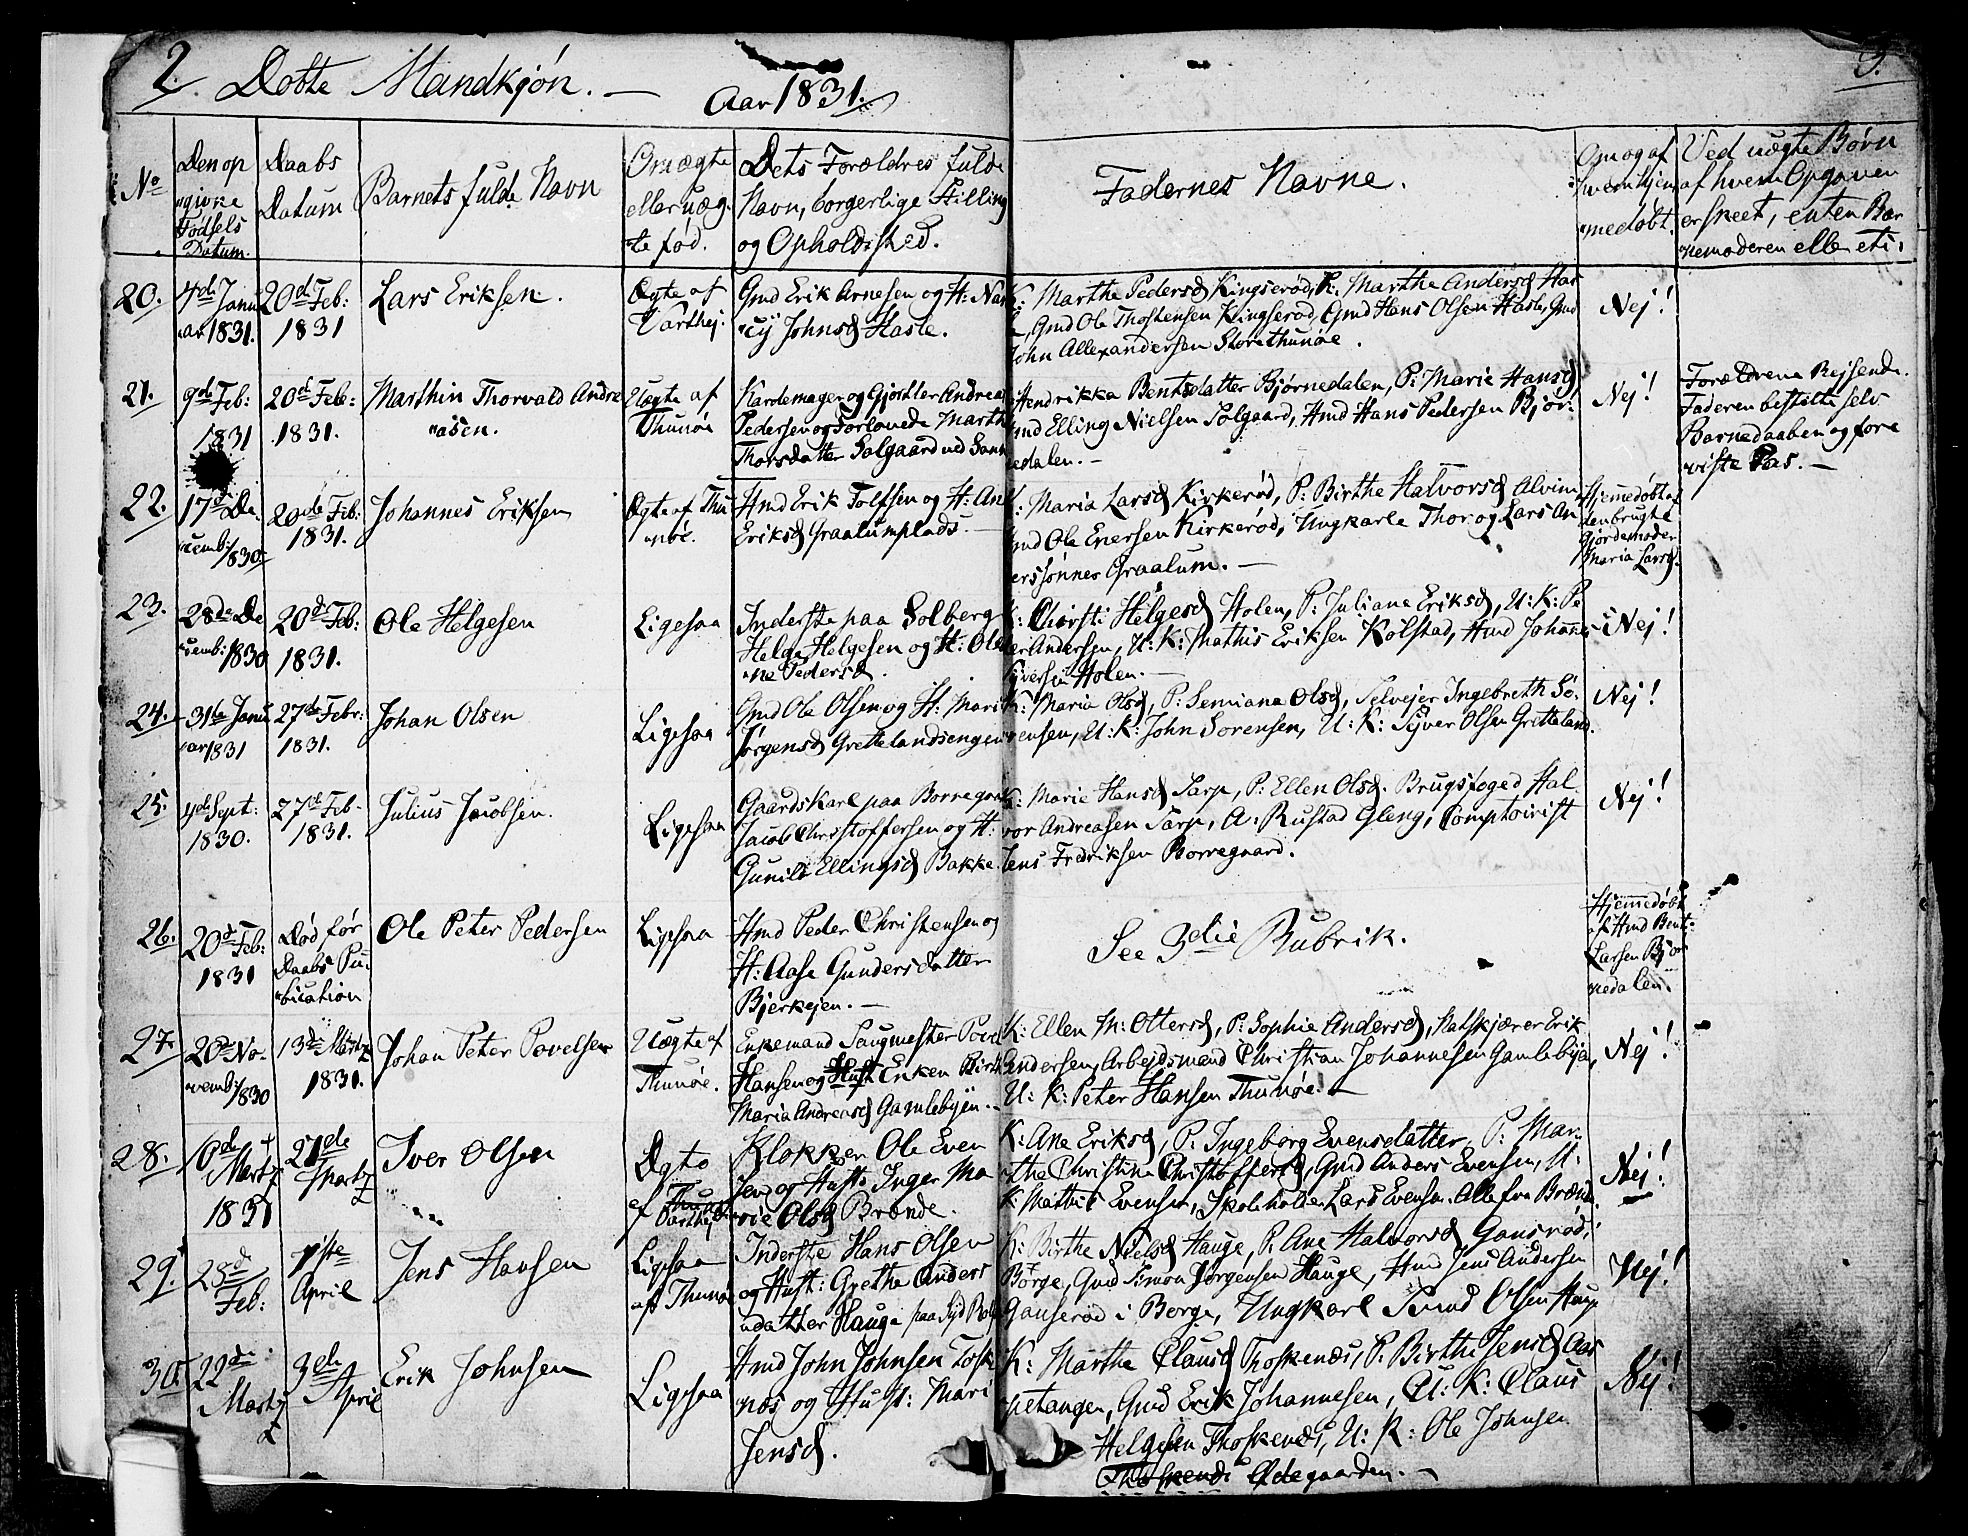 2. Døbte Mandkjøn. — Aar 1831.
3.
No
Den op
givne
Fødsels
Datum.
Daabs
Datum
Barnets fulde Navn
Om ægte
eller uæg-
te fød.
Dets Forældres fulde
Navn, borgerlige Stilling
og Opholdssted.
Fadernes Navne.
Om og af
hvem hjem
medøbt.
Ved uægte Børn
af hvem Opgaven
er skeet, enten Bar
nemoderen eller eti.
20.
4de Janu
ar 1831.
20de Feb:
1831
Lars Eriksen.
Ægte af
Varthej.
Gmd Erik Arnesen og H: Nan
cÿ Johnsd Hasle.
K: Marthe Pedersd Kingserød, P: Marthe Andersd Has
le, Gmd Ole Thostensen Kingserød, Gmd Hans Olsen Hasle, Gmd
John Allexandersen Storethunøe.
Nej!
21.
9de Feb:
1831
20de Feb:
1831.
Marthin Thorvald Andre
asen.
Uægte af
Thunøe
Kardemager og Gjørtler Andreas
Pedersen og Forlovede Marth
Thorsdatter Solgaard ved San
Hendrikka Bentsdatter Bjørnedalen, P: Marie Hansd
Gmd Elling Nielsen Solgaard, Hmd Hans Pedersen Bjør:
nedalen. —
Nej!
Forældrene Rejsende.
Faderen bestilte selv
Barnedaaben og fore
viste Pas. —
22.
17de De
cemb: 1830.
20de Feb:
1831.
Johannes Eriksen
Ægte af Thu
nøe.
Hmd Erik Tolfsen og H: An
Eriksd Graalumplads. —
K: Maria Larsd Kirkerød, P: Birthe Halvorsd Alvim
Gmd Ole Enersen Kirkerød, Ungkarle Thor og Lars An
derssønner Graalum. —
Hjemmedøbt af
den brugte
Gjordemoder
Maria Larsd.
23.
28de De
cemb: 1830
20de Feb:
1831.
Ole Helgesen
Ligesaa
Inderste paa Solberg
Helge Helgesen og H: Ole
ne Pedersd.
K: Chirsti Helgesd Holen, P: Juliane Eriksd, U: K: Pe
der Andersen, U: K: Mathis Eriksen Kolstad, Hmd Johannes
Syversen Holen. —
Nej!
24.
31te Janu
ar 1831
27de Febr:
1831.
Johan Olsen
Ligesaa
Gmd Ole Olsen og H: Mari
Jørgensd Grettelandsengen
K: Maria Olsd, P: Semiana Olsd, Selvejer Ingebreth Sø-
rensen, U: K: John Sørensen, U: K: Syver Olsen Gretteland.
Nej!
25.
4de Sept:
1830.
27de Feb-
1831.
Julius Jacobsen.
Ligesaa
Gaardskarl paa Borregaar
Jacob Christoffersen og H:
Gunild Ellingsd Bakke.
K: Marie Hansd Sarp, P: Ellen Olsd. Brugsfoged Hal
vor Andreasen Sarp, A. Rustad Gleng, Comptoirist
Jens Fredriksen Borregaard.
Nej!
26.
20de Feb:
1831
Død før
Daabs Pu-
blication
Ole Peter Pedersen
Ligesaa
Hmd Peder Christensen og
H: Aase Gundersdatter
Bjerkejen. —
See 3die Rubrik.
Hjemmedøbt
af Hmd Bent
Larsen Bjør
nedalen.
27.
20de No-
vemb: 1830
13de Martz
1831.
Johan Peter Povelsen
Uægte af
Thunøe.
Enkemand Saugmester Povel
Hansen og Enken Birth
Maria Andreasd Gamlebyen. —
K: Ellen M: Ottersd, P: Sophie Andersd, Ratskjærer Erik
Andersen, Arbejdsmand Christian Johannesen Gamlebyen,
U: K: Peter Hansen Thunøe. —
Nej!
28.
10de
Martz
1831
21de
Martz
Iver Olsen
Ægte
af Varthej
Klokker Ole Even
sen og Hust. Inger Ma
rie Olsd Brønde.
K: Ane Eriksd, P: Ingeborg Evensdatter, P: Mar-
the Christine Christoffersd, Gmd Anders Evensen, U:
K: Mathis Evensen, Skoleholder Lars Evensen. Alle fra Brønde.
Nej!
29.
28de
Feb:
1ste
April
Jens Hansen
Ligesaa
af Thunøe
Inderste Hans Olsen
og Hust: Grethe Anders
datter Hauge paa
K: Birthe Nielsd Hauge, P. Ane Halvorsd Gansrød i
Borge, Gmd Simon Jørgensen Hauge, Hmd Jens Andersen
Gansrød i Borge, Ungkarl Knud Olsen Haug
Nej!
30.
22de
Martz
3de
April
Erik Johnsen
Ligesaa
Hmd John Johnsen Tosk
næs og Hust: Mari
Jensd.
K: Marthe Clausd Thoskenæs, P. Birthe Jensd Aas
petangen, Gmd Erik Johannesen, U: K: Claus
Helgesen Thoskenæs, U: K: Ole Johnsen
Thoskenæs Ødegaarden. —
Nej!